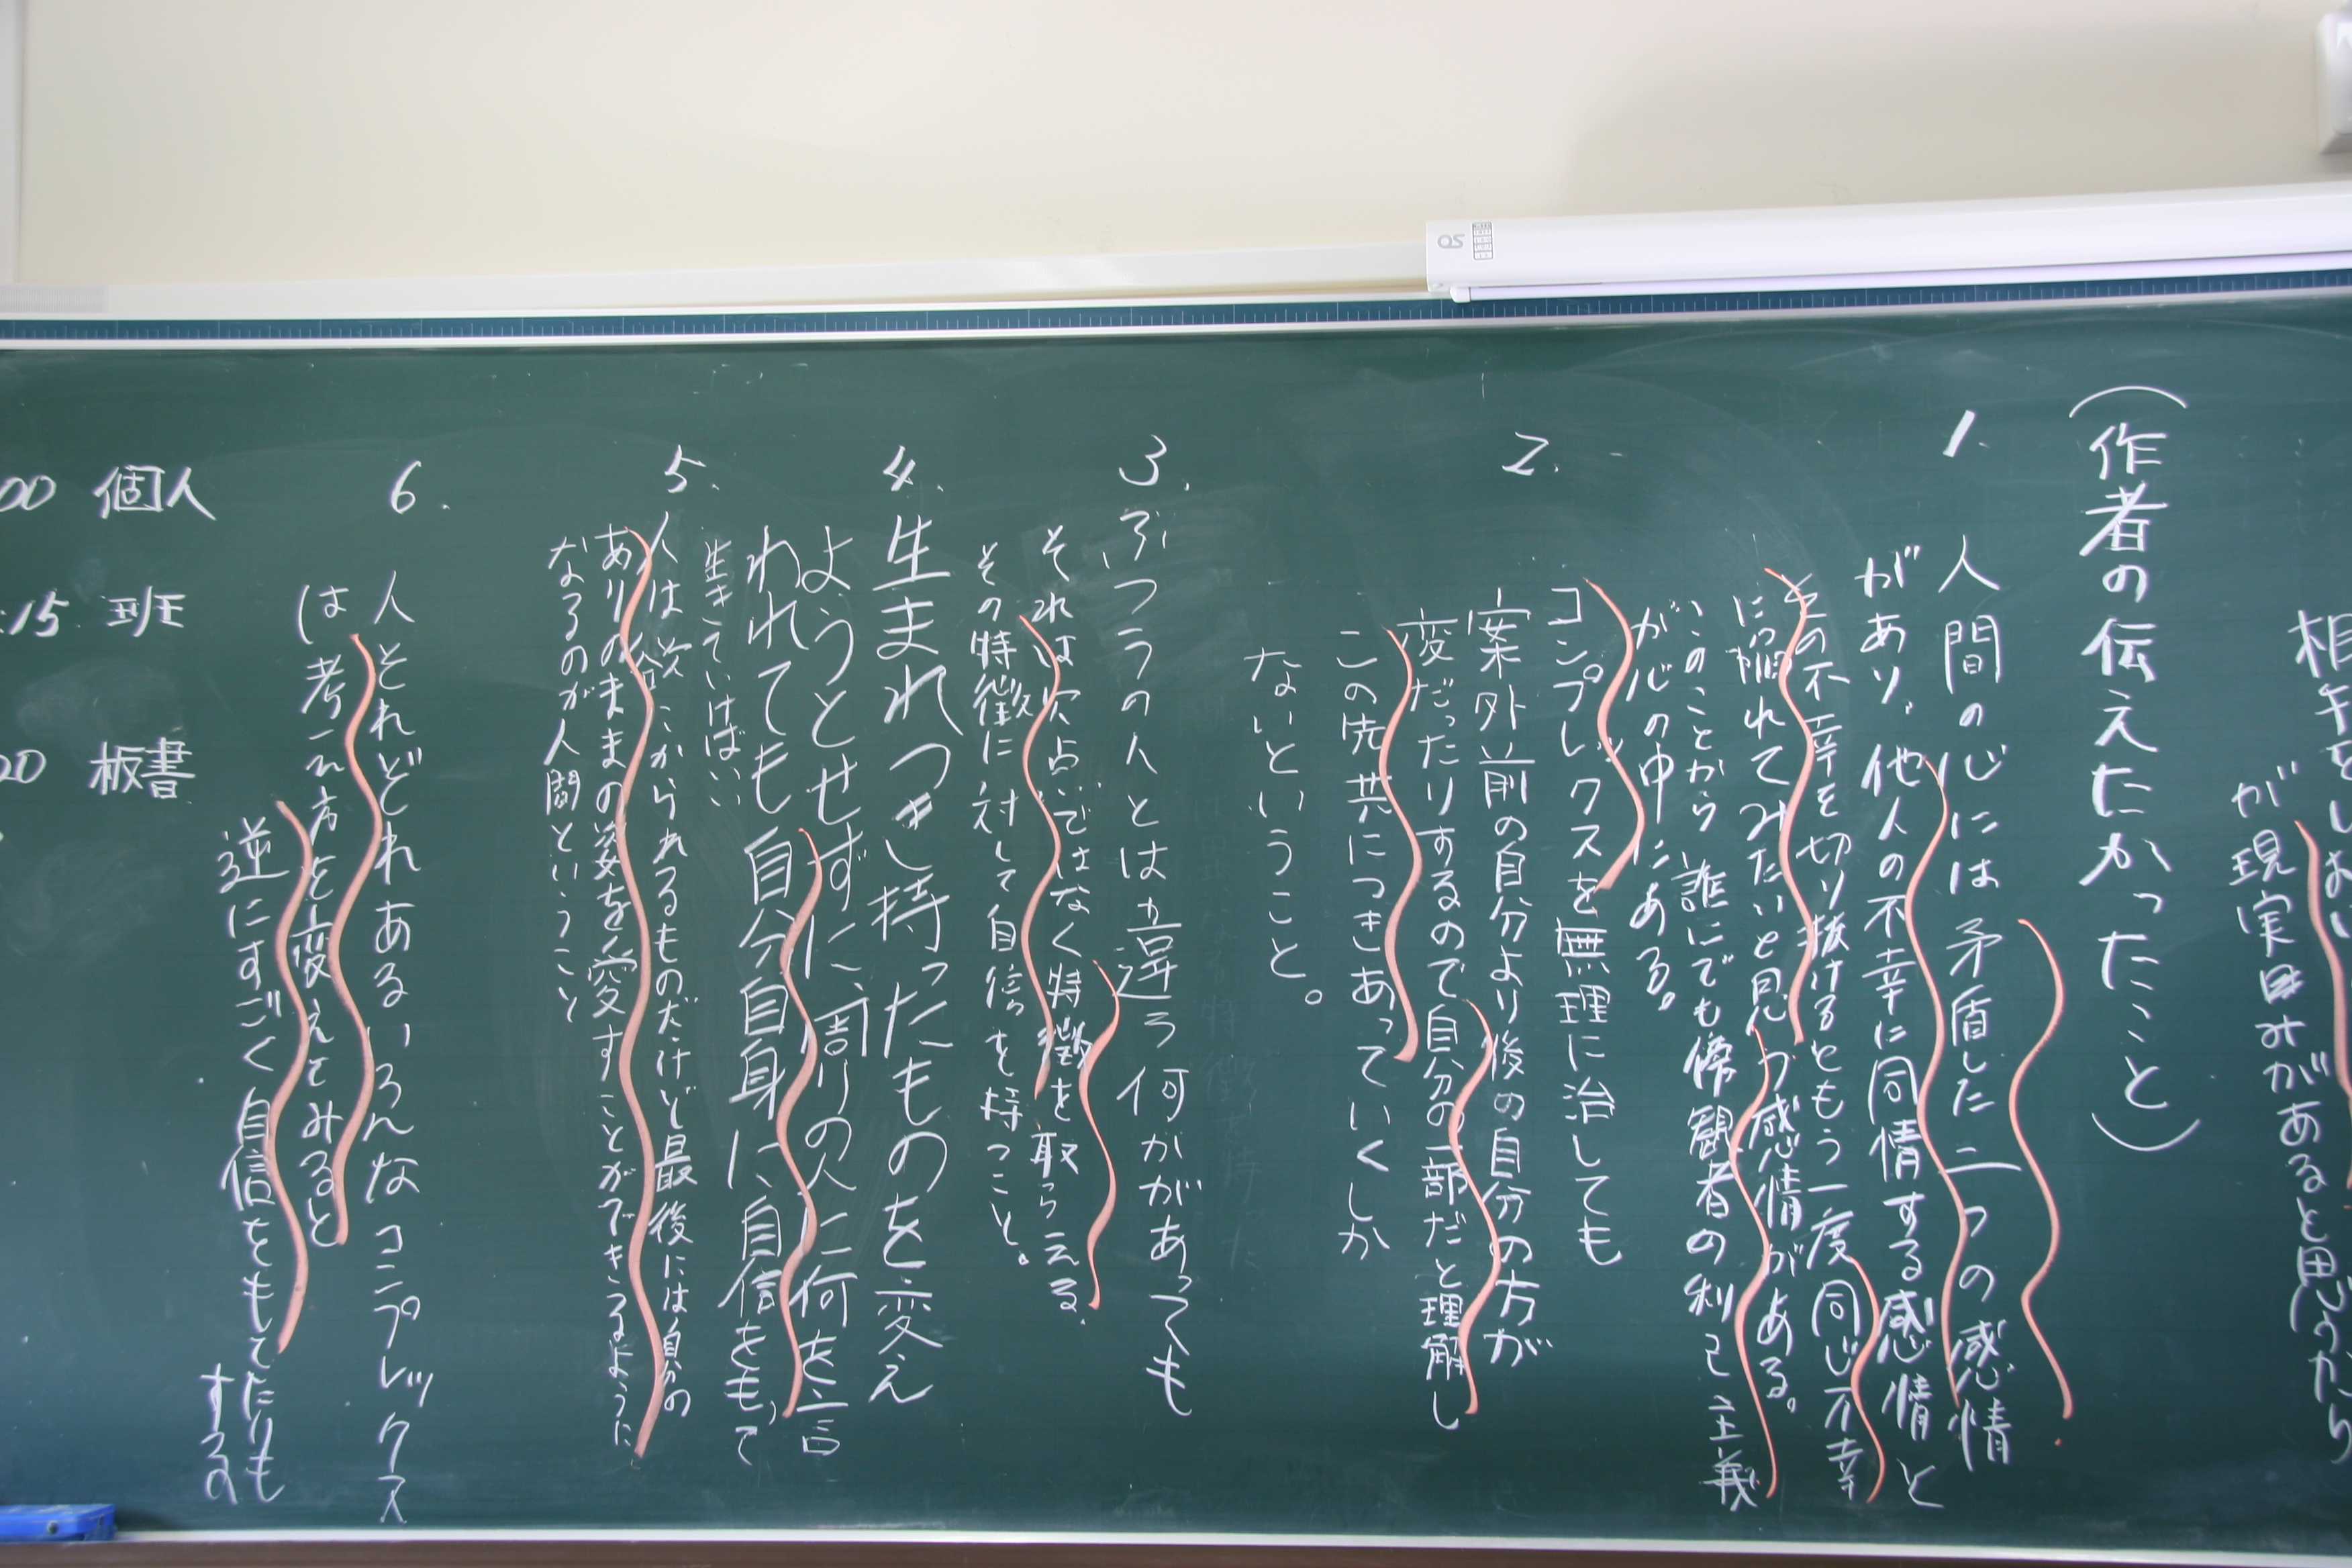 相手をしよい
が現実日みがあると思うから
(作者の伝えたかったこと)
1.
人間の心には矛盾した二つの感情
があり、他人の不幸に同情する感情と
その不幸を切り抜けるともう一度同じ不幸
に陥れてみたいと思う感情がある。
このことから誰にでも傍観者の利己主義
が心の中にある。
2.
コンプレックスを無理に治しても
案外前の自分より後の自分の方が
変だったりするので自分の一部だと理解し
この先共につきあっていくしか
ないということ。
3. ふつうの人とは違う何かがあっても
それは欠点ではなく特徴を取らえる。
その特徴に対して自信を持つこと。
4. 生まれつき持ったものを変え
ようとせずに、周りの人に何を言
われても自分自身に自信をもって
生きていけばいい
5. 人は次々こからられるものだけど最後には自分の
ありのままの姿を愛すことができるように
なるのが人間ということ
6.
人それぞれあるいろんなコンプレックス
は考え方を変えてみると
逆にすごく自信をもてたりも
するの
00 個人
:15 班
20 板書
OS